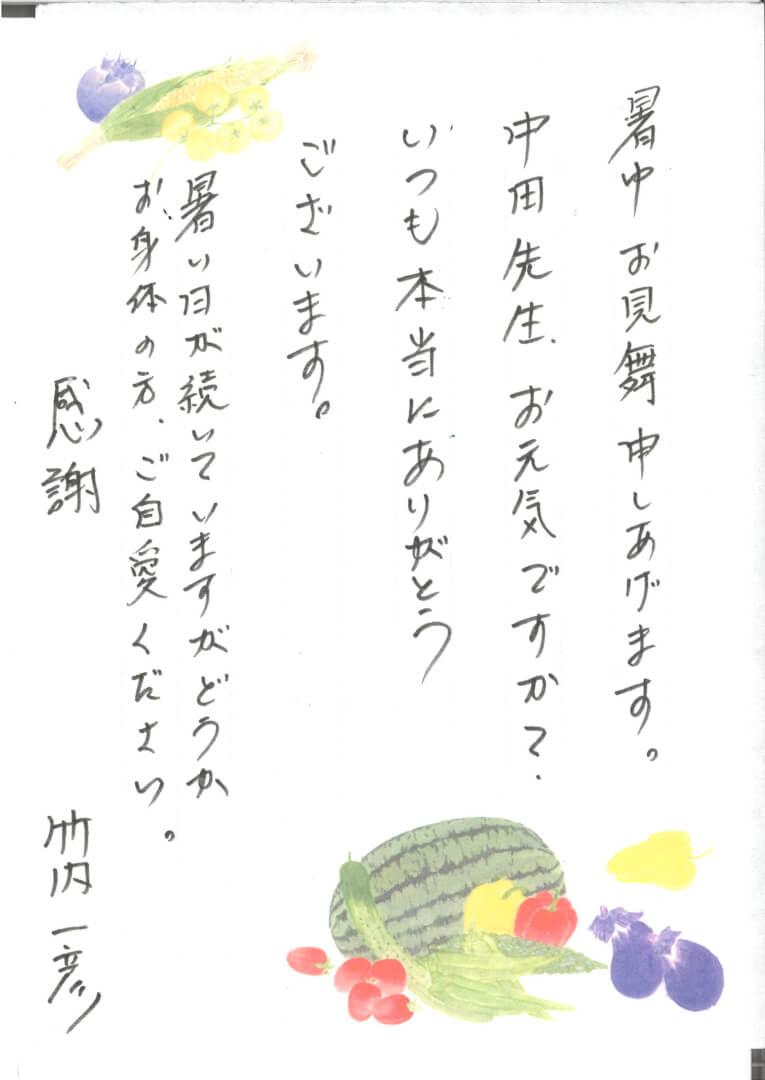 暑中お見舞申しあげます。
中田先生、お元気ですか?
いつも本当にありがとう
ございます。
暑い日が続いていますがどうか
お身体の方、ご自愛ください。
感謝
竹内一彦